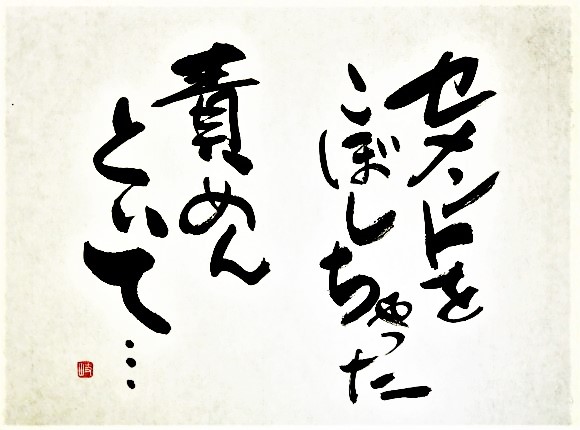 セメントを
こぼしちゃった
責めん
といて…
岐